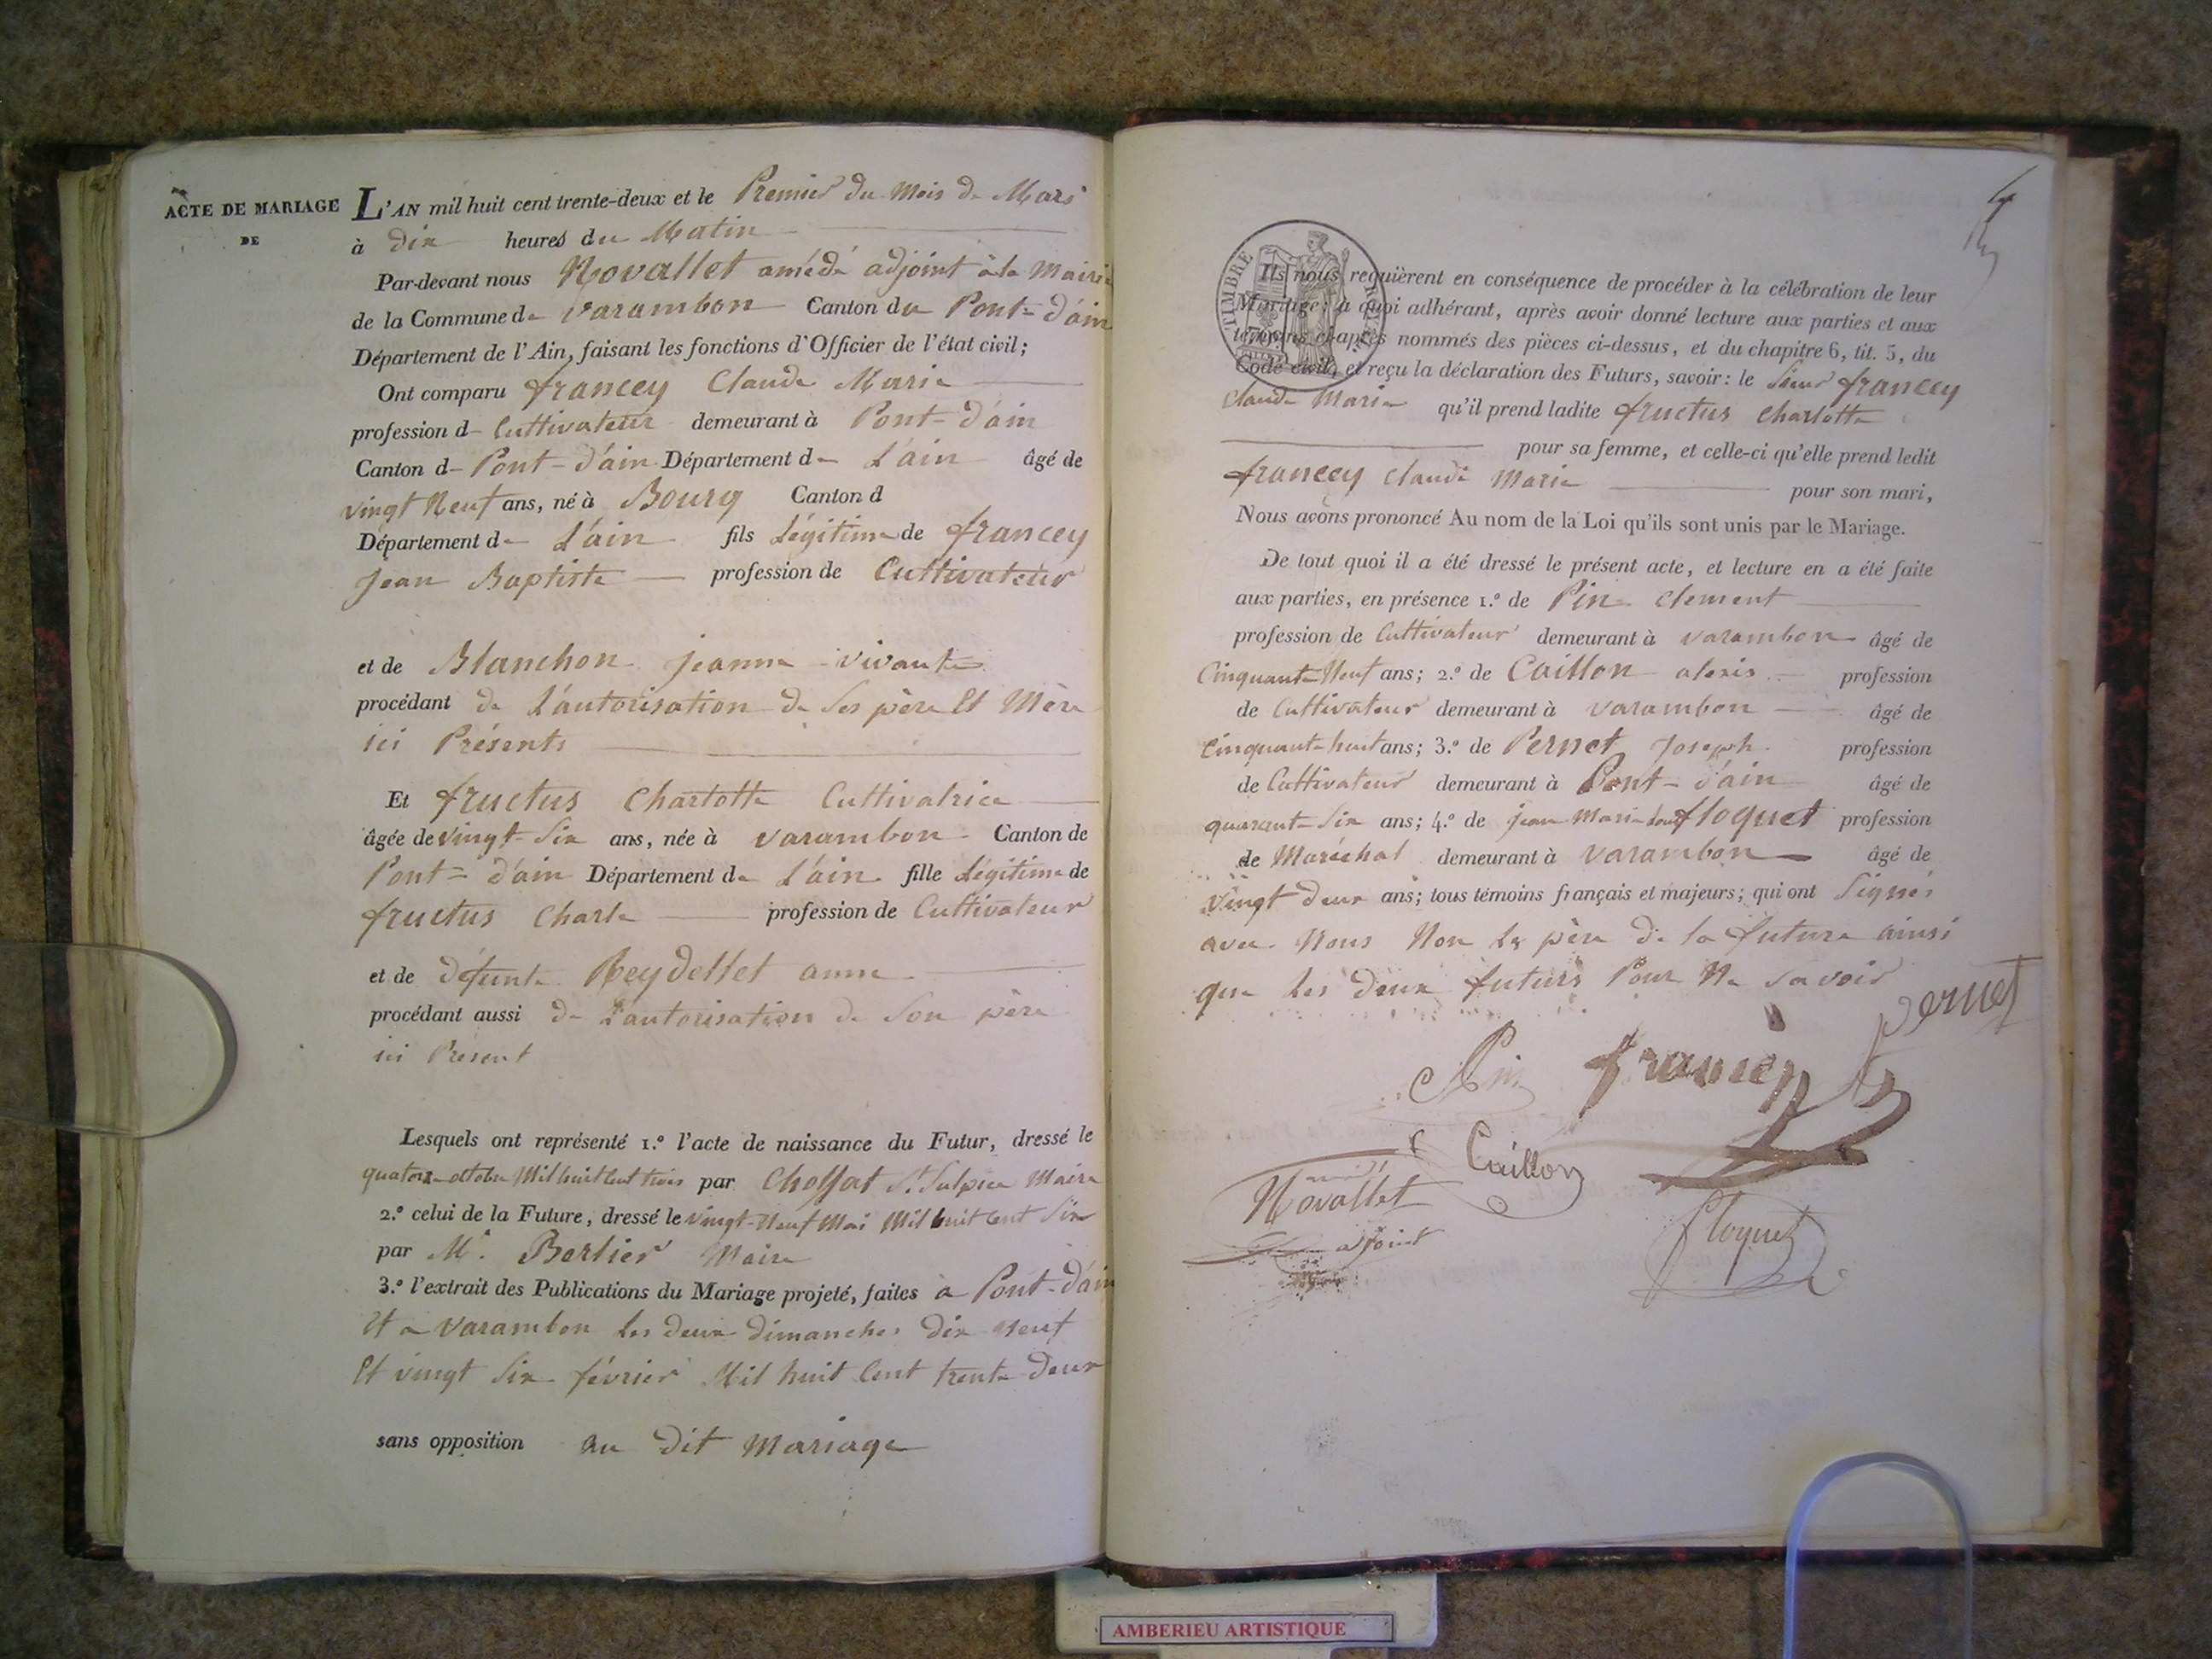 ACTE DE MARIAGE
DE
L'AN mil huit cent trente-deux et le Premier du Mois de Mars
à dix heures du Matin
Par-devant nous Novallet amédé adjoint à la Mairie
de la Commune de Varambon Canton du Pont-d'ain
Département de l'Ain, faisant les fonctions d'Officier de l'état civil;
Ont comparu francey Claude Marie
profession de Cultivateur demeurant à Pont-d'ain
Canton de Pont-d'ain Département de L'ain âgé de
vingt Neuf ans, né à Bourg Canton d
Département de L'ain fils Légitime de francey
Jean Baptiste profession de Cultivateur
et de Blanchon Jeanne vivante
procédant de L'autorisation de Ses père Et Mère
ici Présents
Et fructus Charlotte Cultivatrice
âgée de vingt Six ans, née à Varambon Canton de
Pont-d'ain Département de L'ain fille Légitime de
fructus Charle profession de Cultivateur
et de défunte Reydellet anne
procédant aussi de L'autorisation de Son père
ici Présent
Lesquels ont représenté 1.º l'acte de naissance du Futur, dressé le
quatorze octobre Mil huit Cent trois par Chossat St. Sulpice Maire
2.º celui de la Future, dressé le vingt-Neuf Mai Mil huit Cent Six
par Mr. Berlier Maire
3.º l'extrait des Publications du Mariage projeté, faites à Pont-d'ain
Et a Varambon les deux dimanches dix Neuf
Et vingt Six février Mil huit Cent trente deux
sans opposition au dit Mariage
TIMBRE ROYAL
Ils nous requièrent en conséquence de procéder à la célébration de leur
Mariage; à quoi adhérant, après avoir donné lecture aux parties et aux
témoins ci-après nommés des pièces ci-dessus, et du chapitre 6, tit. 5, du
Code civil, et reçu la déclaration des Futurs, savoir: le Sieur francey
Claude Marie qu'il prend ladite fructus Charlotte
pour sa femme, et celle-ci qu'elle prend ledit
francey Claude Marie pour son mari,
Nous avons prononcé Au nom de la Loi qu'ils sont unis par le Mariage.
De tout quoi il a été dressé le présent acte, et lecture en a été faite
aux parties, en présence 1.º de Pin Clement
profession de Cultivateur demeurant à Varambon âgé de
Cinquante Neuf ans; 2.º de Caillon alexis profession
de Cultivateur demeurant à Varambon âgé de
Cinquante-huit ans; 3.º de Pernet Joseph profession
de Cultivateur demeurant à Pont-d'ain âgé de
quarante Six ans; 4.º de jean Marie floquet profession
de Maréchal demeurant à Varambon âgé de
vingt deux ans; tous témoins français et majeurs; qui ont Signés
avec Nous Non Le père de la future ainsi
que Les deux futurs Pour Ne Savoir
pernet
Pin francey
Caillon
Novallet
adjoint
floquet
AMBERIEU ARTISTIQUE